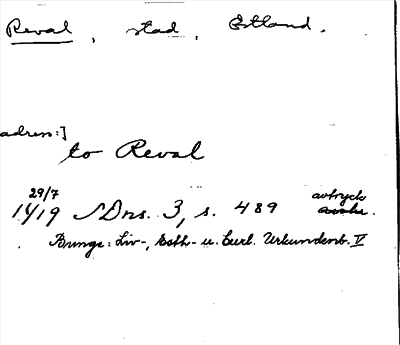 Reval, stad, Estland.
adress:]
to Reval
29/7
1419 SDns. 3, s. 489 avtryck
Bunge: Liv-, Esth- u. Curl. Urkundenb. V